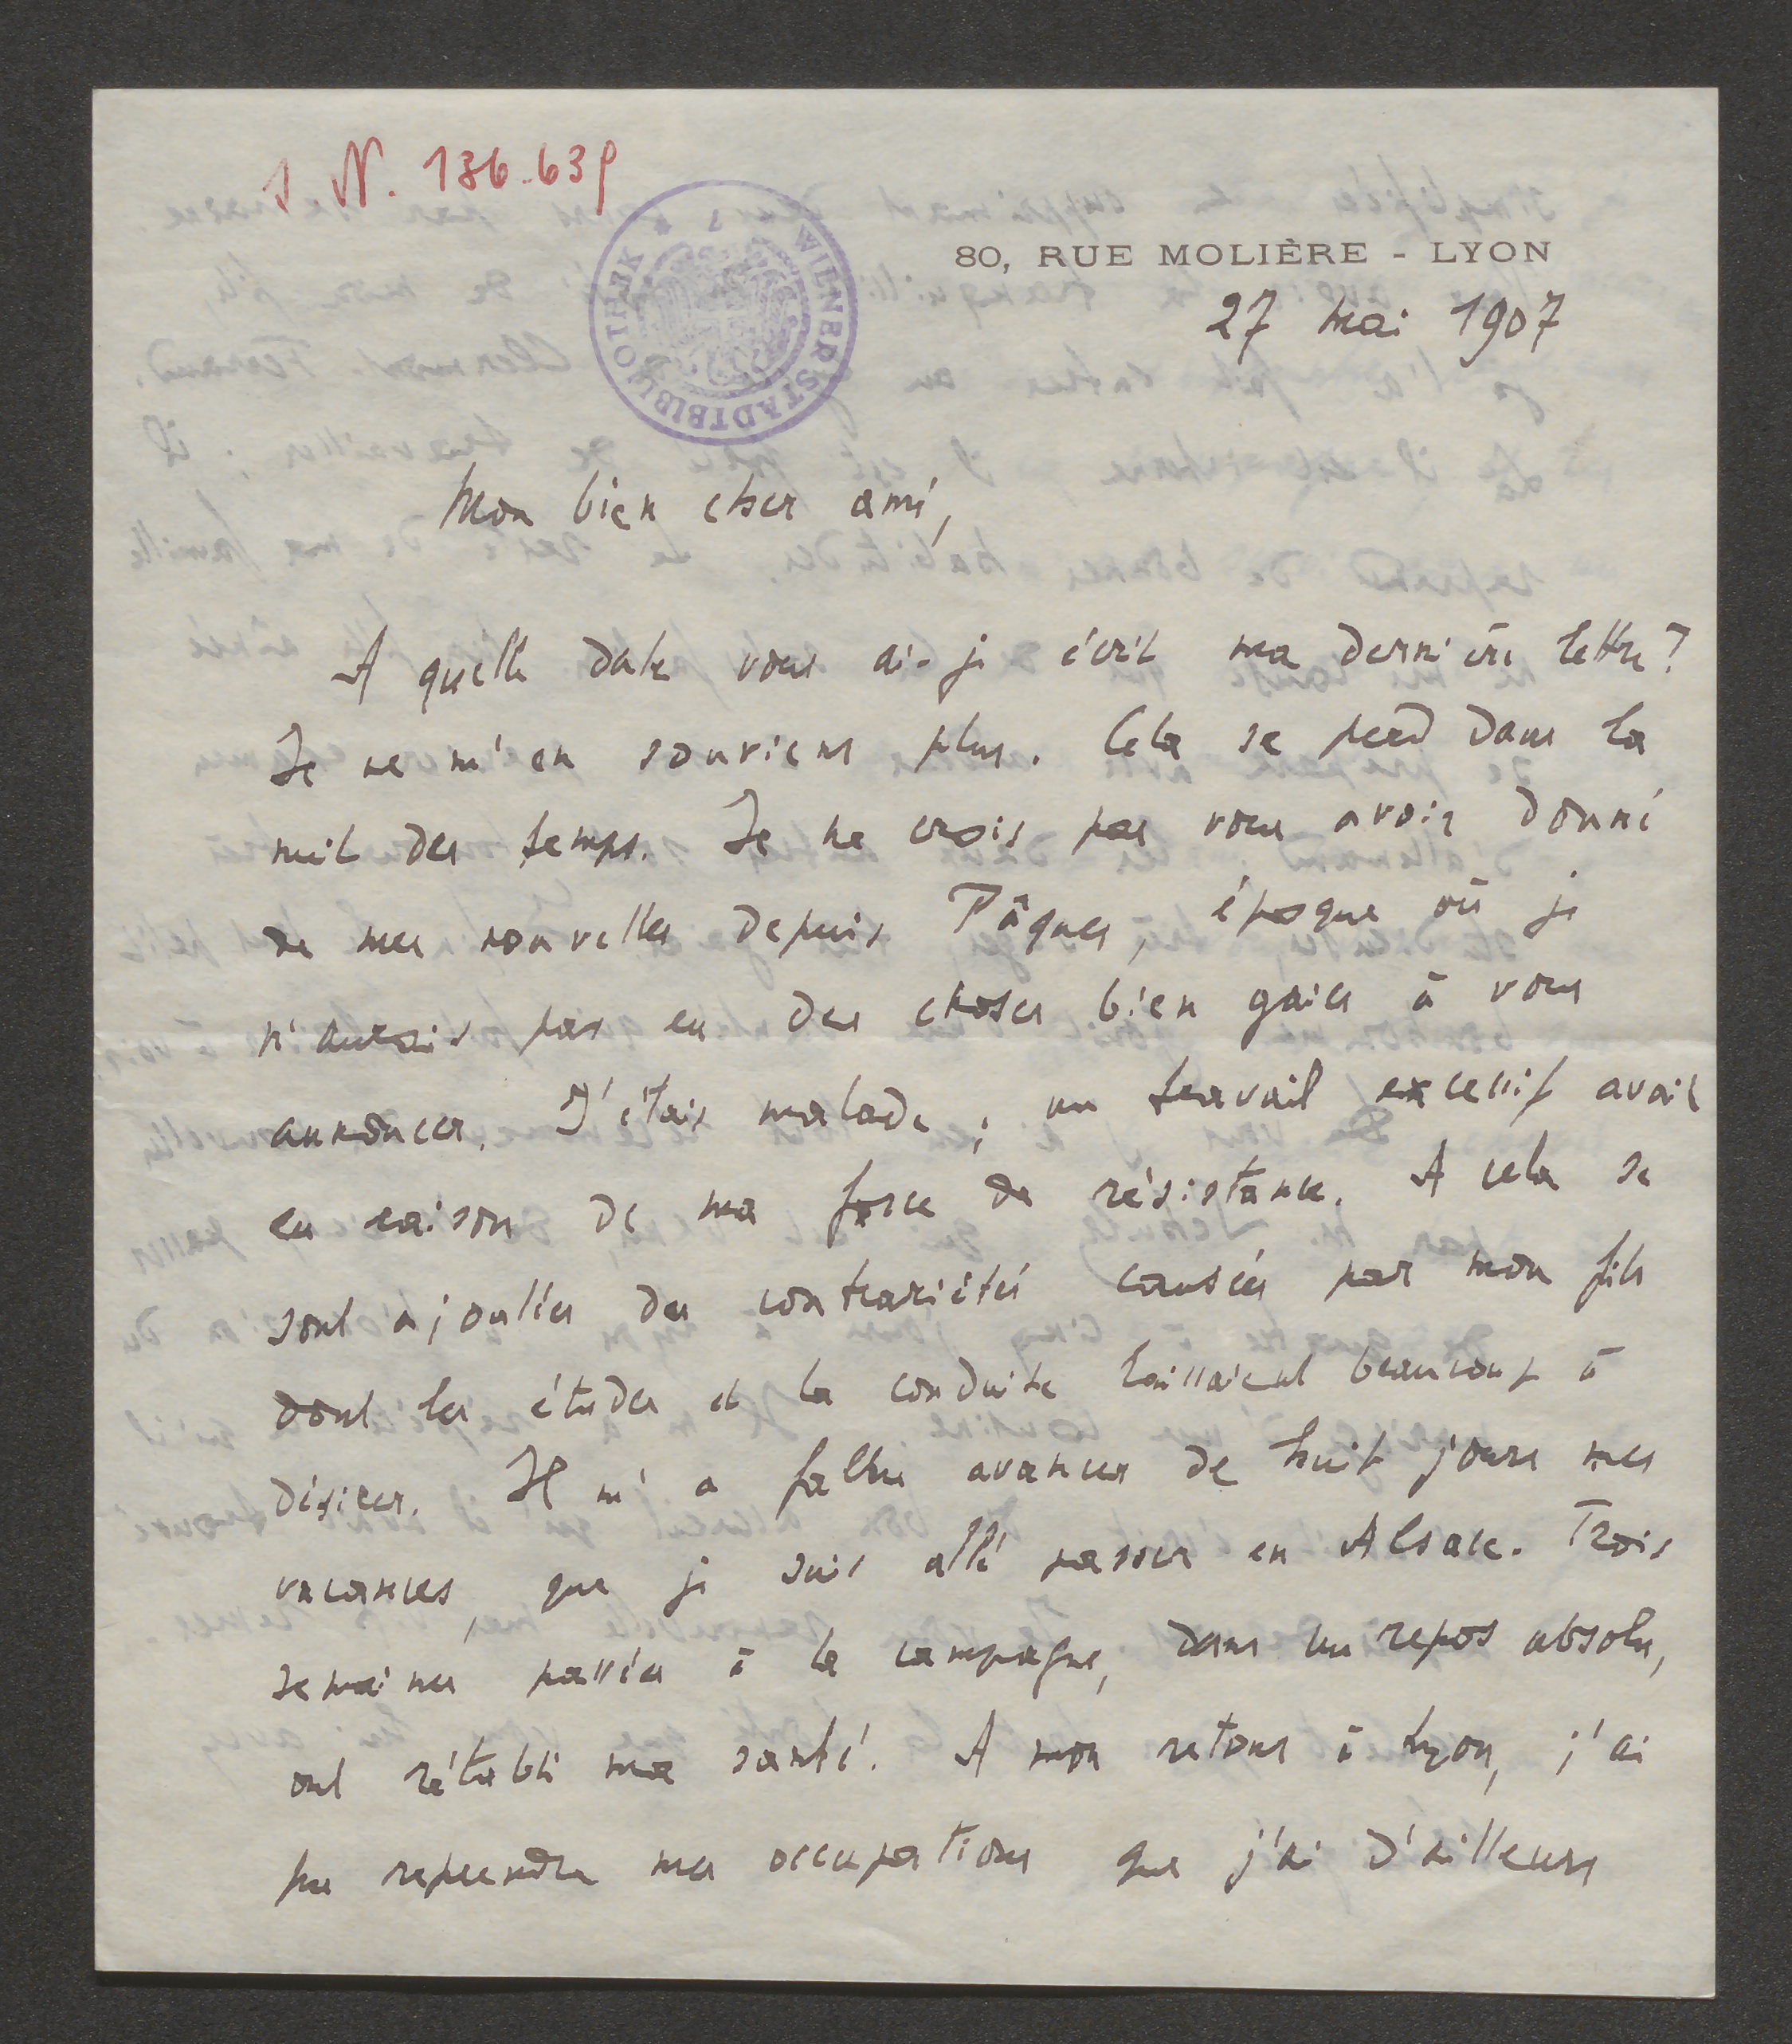 I. N. 136.639
WIENER STADTBIBLIOTHEK * 7
80, RUE MOLIÈRE - LYON
27 Mai 1907
Mon bien cher ami,
A quelle date vous ai-je écrit ma dernière lettre?
Je ne m'en souviens plus. Cela se perd dans la
nuit des temps. Je ne crois pas vous avoir donné
de mes nouvelles depuis Pâques, époque où je
n'aurais pas eu des choses bien gaies à vous
annoncer. J'étais malade; un travail excessif avait
eu raison de ma force de résistance. A cela se
sont ajoutées des contrariétés causées par mon fils
dont les études et la conduite laissaient beaucoup à
désirer. Il m'a fallu avancer de huit jours mes
vacances, que je suis allé passer en Alsace. Trois
semaines passées à la campagne, dans un repos absolu,
ont rétabli ma santé. A mon retour à Lyon, j'ai
pu reprendre mes occupations que j'ai d'ailleurs